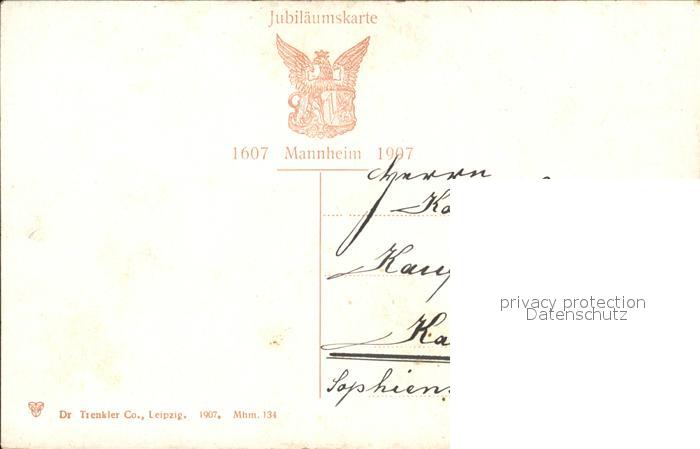 Jubiläumskarte
1607 Mannheim 1907
Herrn
Ka
Kauf
Ka
Sophien
privacy protection
Datenschutz
Dr Trenkler Co., Leipzig. 1907. Mhm. 134